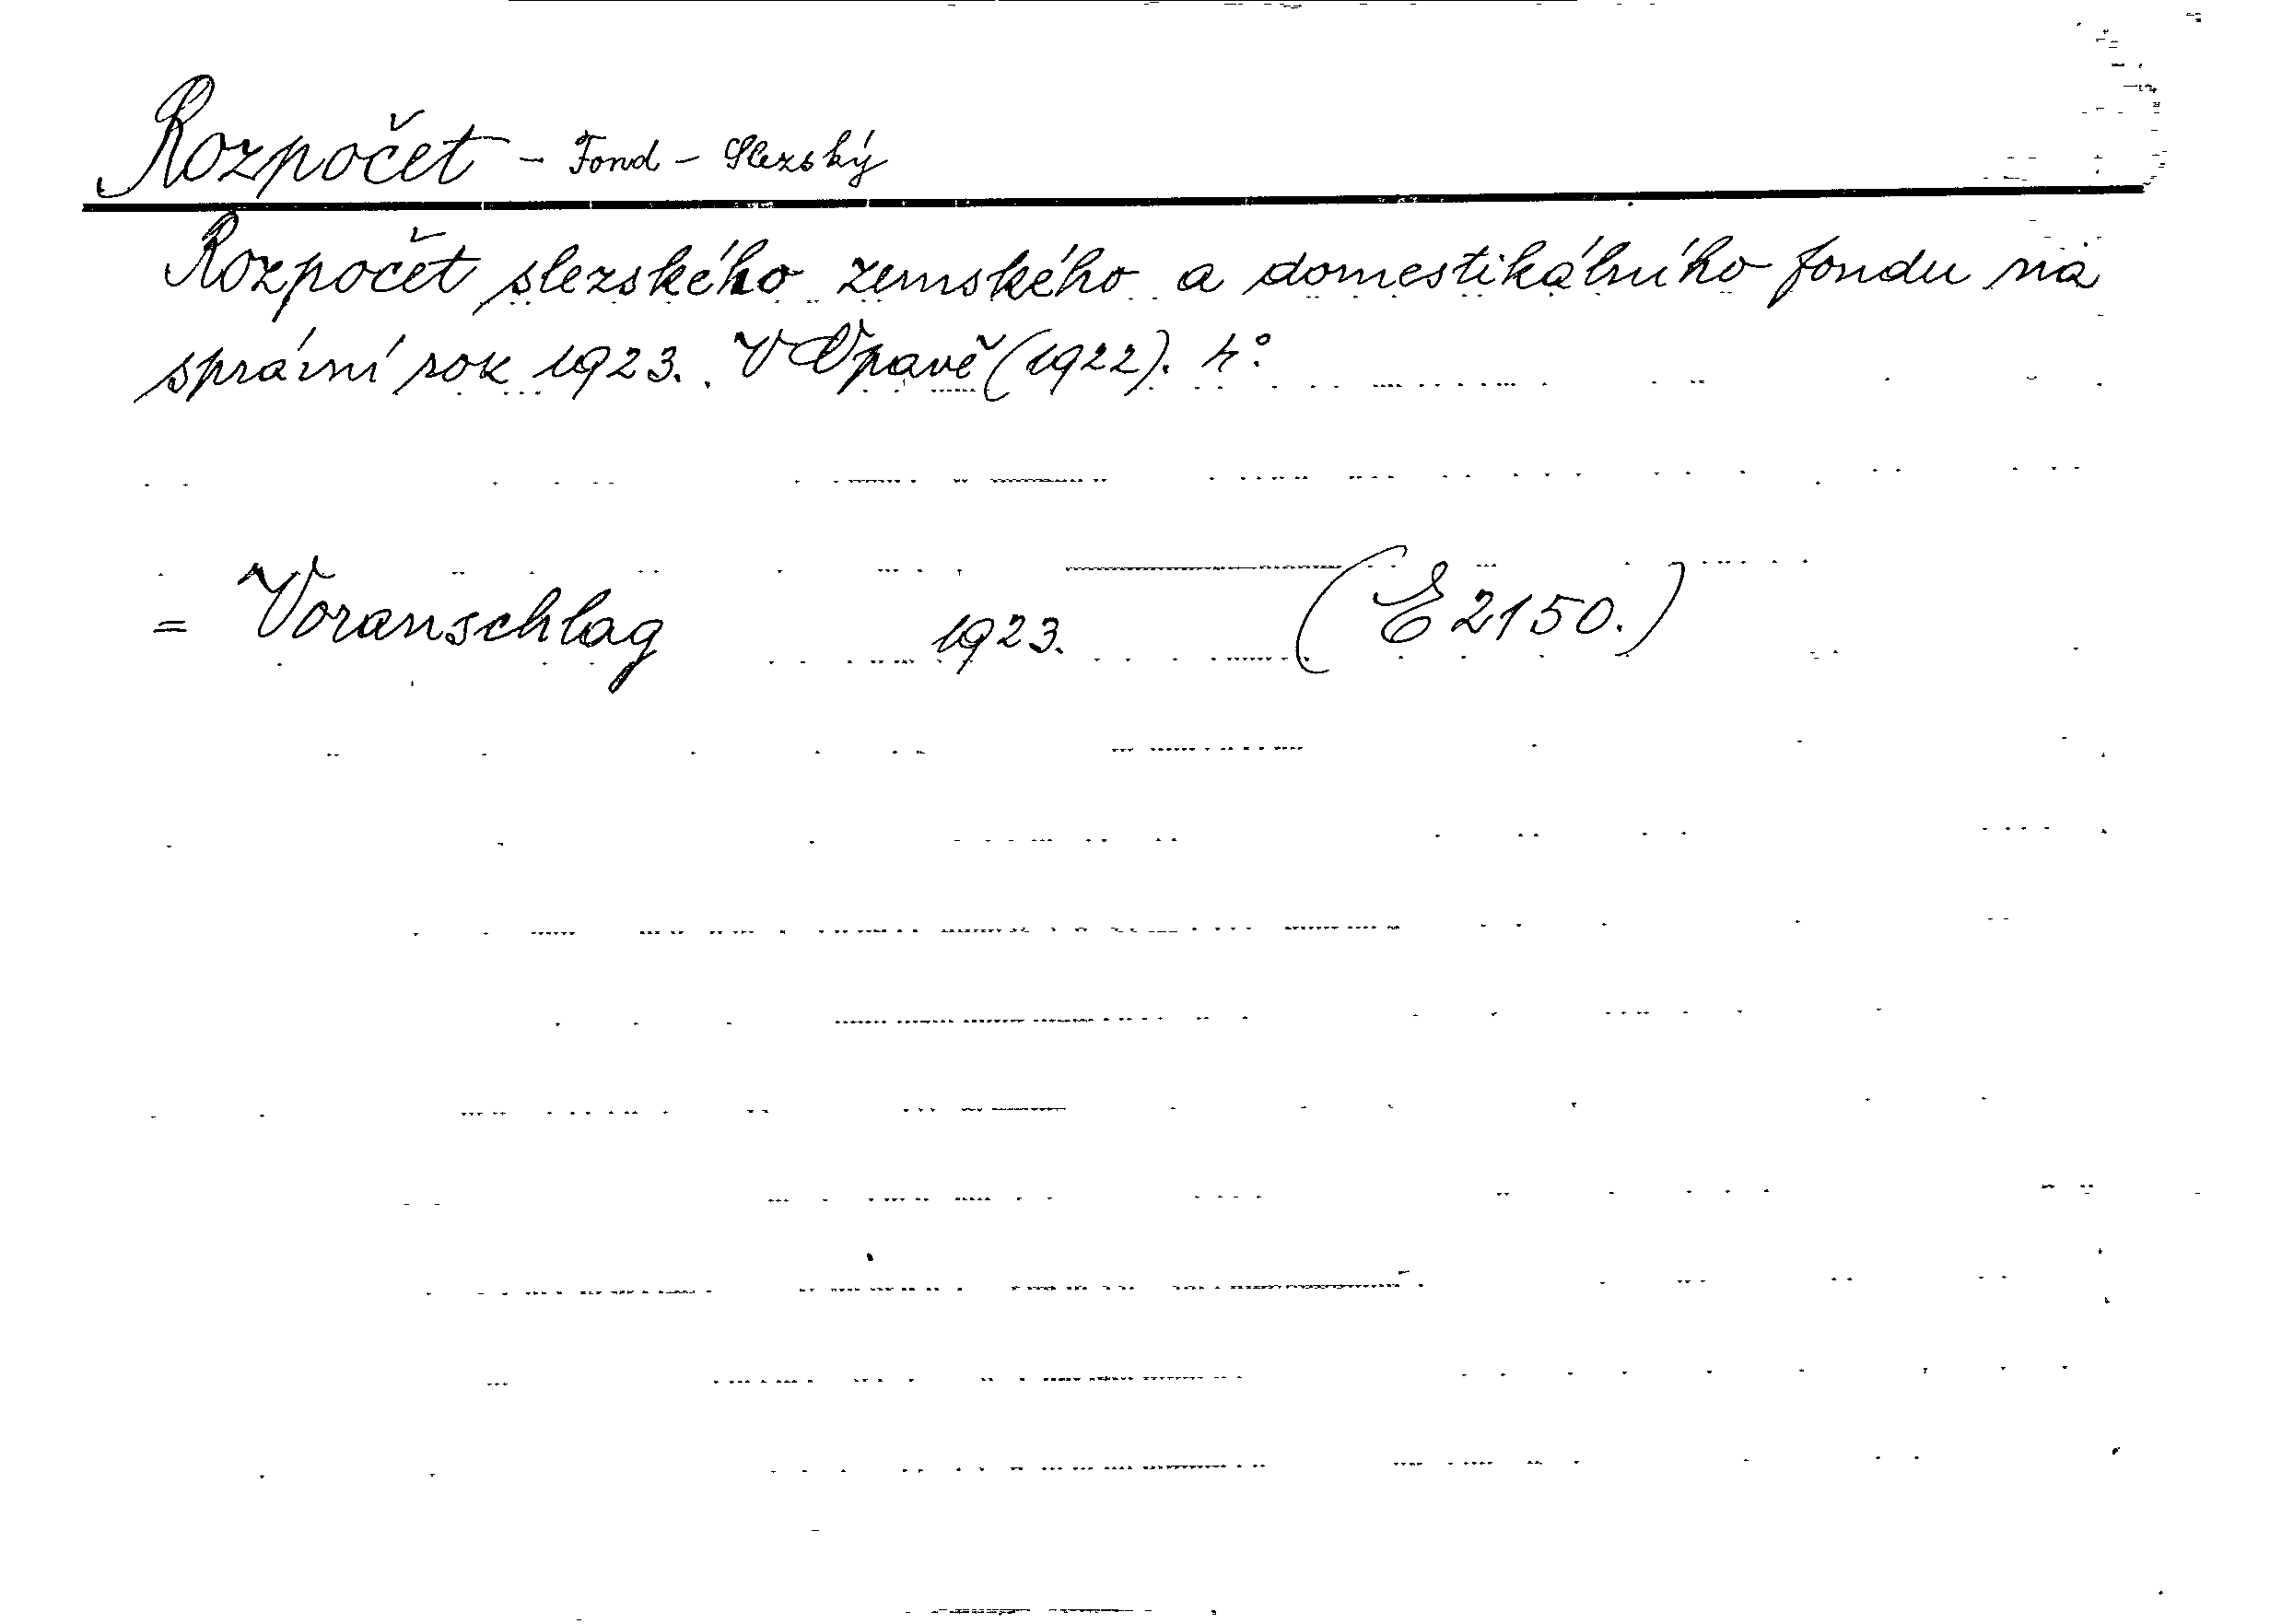 Rozpočet - Fond - Slezský
Rozpočet slezského zemského a domestikálního fondu na
správní rok 1923. V Opavě (1922). 4°.
= Voranschlag 1923. (E 2150.)